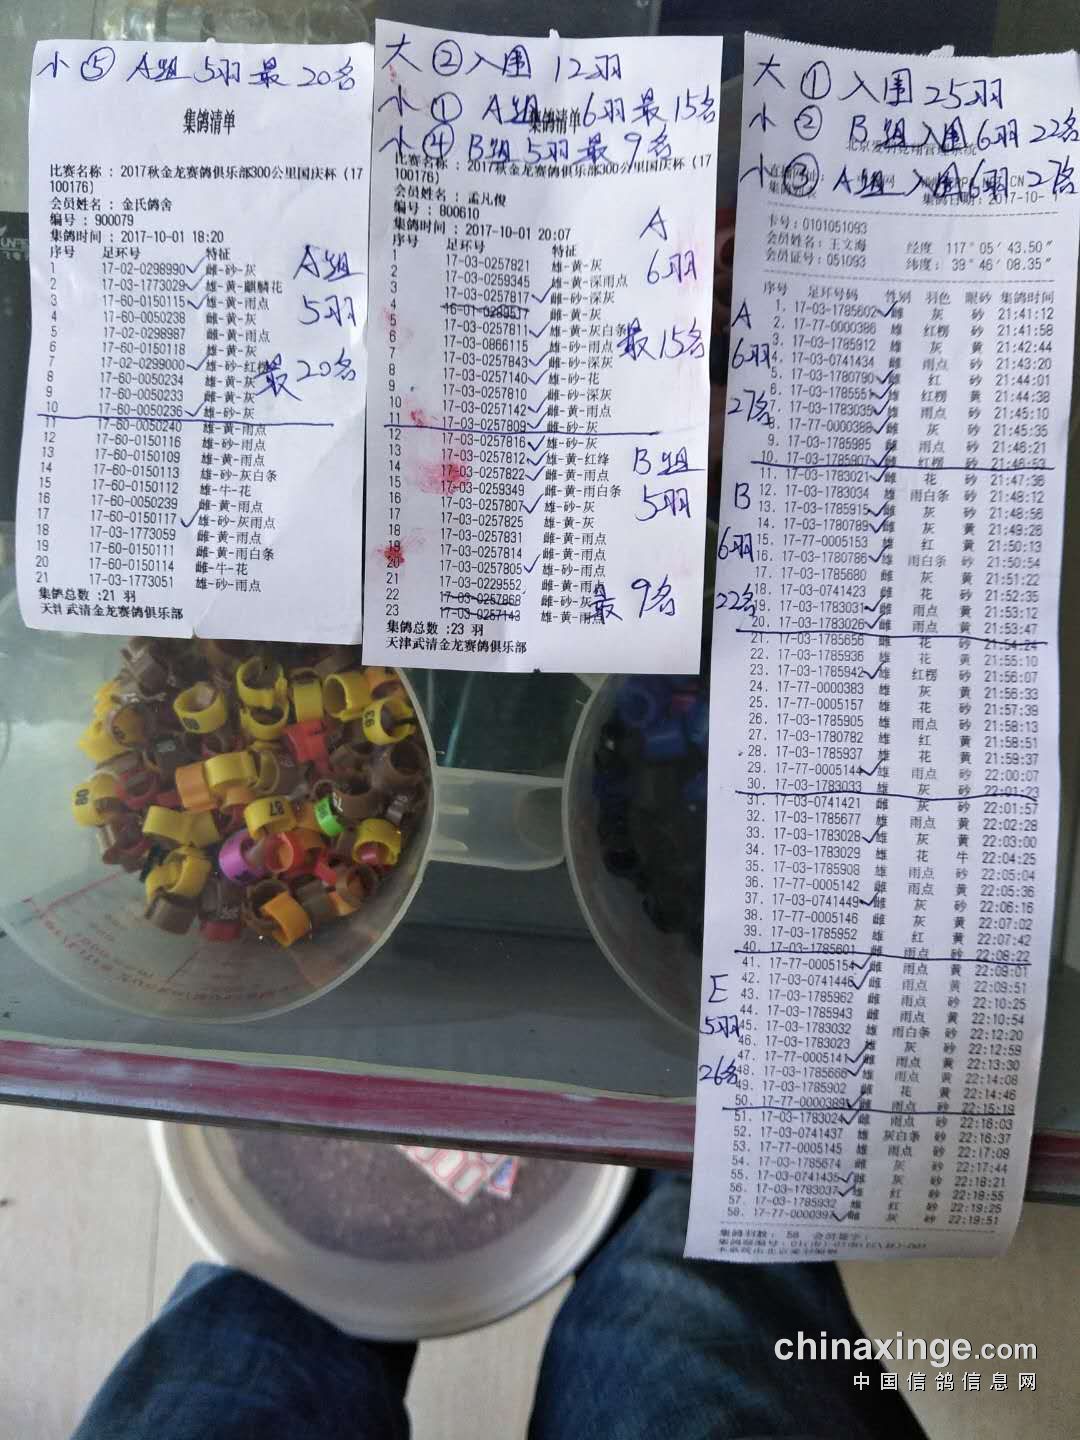 小⑤ A组 5羽 最 20名
集鸽清单
比赛名称 : 2017秋金龙赛鸽俱乐部300公里国庆杯（17
100176)
会员姓名 : 金氏鸽舍
编号 : 900079
集鸽时间 : 2017-10-01 18:20
序号 足环号 特征
1 17-02-0298990 雌-砂-灰
2 17-03-1773029 雄-黄-麒麟花
3 17-60-0150115 雄-黄-雨点
4 17-60-0050238 雌-黄-灰
5 17-02-0298987 雌-黄-雨点
6 17-60-0150118 雄-黄-灰
7 17-02-0299000 雄-砂-红楞
8 17-60-0050234 雄-黄-灰
9 17-60-0050233 雌-黄-灰
10 17-60-0050236 雄-砂-灰
11 17-60-0050240 雄-黄-雨点
12 17-60-0150116 雄-砂-雨点
13 17-60-0150109 雄-黄-雨点
14 17-60-0150113 雄-砂-灰白条
15 17-60-0150112 雄-牛-花
16 17-60-0050239 雌-黄-雨点
17 17-60-0150117 雄-砂-灰雨点
18 17-03-1773059 雌-黄-雨点
19 17-60-0150111 雌-黄-雨白条
20 17-60-0150114 雌-牛-花
21 17-03-1773051 雄-砂-雨点
集鸽总数 :21 羽
天津武清金龙赛鸽俱乐部
A组
5羽
最20名
大 ② 入围 12羽
小 ① A组 6羽 最 15名
集鸽清单
小 ④ B组 5羽 最 9名
比赛名称 : 2017秋金龙赛鸽俱乐部300公里国庆杯（17
100176)
会员姓名 : 孟凡俊
编号 : 800610
集鸽时间 : 2017-10-01 20:07
序号 足环号 特征
1 17-03-0257821 雄-黄-灰
2 17-03-0259345 雄-黄-深雨点
3 17-03-0257817 雌-砂-深灰
4 雄-黄-灰
5 17-03-0257811 雄-黄-灰白条
6 17-03-0866115 雄-砂-雨点
7 17-03-0257843 雌-砂-深灰
8 17-03-0257140 雄-砂-花
9 17-03-0257810 雌-砂-深灰
10 17-03-0257142 雌-黄-雨点
11 17-03-0257809 雌-砂-灰
12 17-03-0257816 雄-砂-灰
13 17-03-0257812 雄-黄-红绛
14 17-03-0257822 雌-黄-雨点
15 17-03-0259349 雌-黄-雨白条
16 17-03-0257807 雄-砂-灰
17 17-03-0257825 雄-黄-灰
18 17-03-0257831 雌-黄-雨点
19 17-03-0257814 雌-黄-雨点
20 17-03-0257805 雄-砂-雨点
21 17-03-0229552 雌-黄-雨点
22 17-03-0257868 雌-砂-灰
23 17-03-0257143 雄-黄-雨点
集鸽总数 :23 羽
天津武清金龙赛鸽俱乐部
A
6羽
最15名
B组
5羽
最9名
大 ① 入围 25羽
小 ② B组入围6羽 22名
小 ③ A组 入围6羽 27名
集鸽日期：2017-10- 1
卡号：0101051093
会员姓名：王文海 经度 117°05′43.50″
会员证号：051093 纬度：39°46′08.35″
序号 足环号码 性别 羽色 眼砂 集鸽时间
1. 17-03-1785602 雌 灰 砂 21:41:12
2. 17-77-0000386 雄 红楞 砂 21:41:58
3. 17-03-1785912 雄 灰 黄 21:42:44
4. 17-03-0741434 雌 雨点 砂 21:43:20
5. 17-03-1780790 雌 红 砂 21:44:01
6. 17-03-1785551 雄 红楞 黄 21:44:38
7. 17-03-1783035 雄 雨点 砂 21:45:10
8. 17-77-0000388 雌 灰 砂 21:45:35
9. 17-03-1785985 雌 雨点 砂 21:46:21
10. 17-03-1785907 雌 红楞 砂 21:46:53
11. 17-03-1783021 雌 花 砂 21:47:36
12. 17-03-1783034 雄 雨白条 砂 21:48:12
13. 17-03-1785915 雌 灰 砂 21:48:56
14. 17-03-1780789 雌 灰 黄 21:49:26
15. 17-77-0005153 雄 红 黄 21:50:13
16. 17-03-1780786 雄 雨白条 砂 21:50:54
17. 17-03-1785680 雌 灰 黄 21:51:22
18. 17-03-0741423 雌 花 砂 21:52:35
19. 17-03-1783031 雌 雨点 黄 21:53:12
20. 17-03-1783026 雌 雨点 黄 21:53:47
21. 17-03-1785656 雌 花 砂 21:54:24
22. 17-03-1785936 雄 花 黄 21:55:10
23. 17-03-1785942 雄 红楞 砂 21:56:07
24. 17-77-0000383 雄 灰 黄 21:56:33
25. 17-77-0005157 雄 花 砂 21:57:39
26. 17-03-1785905 雄 雨点 砂 21:58:13
27. 17-03-1780782 雄 红 黄 21:58:51
28. 17-03-1785937 雄 花 黄 21:59:37
29. 17-77-0005144 雄 雨点 砂 22:00:07
30. 17-03-1783033 雄 灰 砂 22:01:23
31. 17-03-0741421 雌 灰 砂 22:01:57
32. 17-03-1785677 雄 雨点 黄 22:02:28
33. 17-03-1783028 雄 灰 黄 22:03:00
34. 17-03-1783029 雄 花 牛 22:04:25
35. 17-03-1785908 雄 雨点 砂 22:05:04
36. 17-77-0005142 雌 雨点 黄 22:05:36
37. 17-03-0741449 雌 灰 砂 22:06:16
38. 17-77-0005146 雌 灰 黄 22:07:02
39. 17-03-1785952 雄 红 黄 22:07:42
40. 17-03-1785601 雌 雨点 砂 22:08:22
41. 17-77-0005154 雌 雨点 黄 22:09:01
42. 17-03-0741446 雌 雨点 黄 22:09:51
43. 17-03-1785962 雌 雨点 砂 22:10:25
44. 17-03-1785943 雌 雨点 黄 22:10:54
45. 17-03-1783032 雄 雨白条 砂 22:12:20
46. 17-03-1783023 雌 灰 砂 22:12:59
47. 17-77-0005141 雌 雨点 黄 22:13:30
48. 17-03-1785666 雄 雨点 黄 22:14:08
49. 17-03-1785902 雌 花 黄 22:14:46
50. 17-77-0000389 雌 雨点 砂 22:15:19
51. 17-03-1783024 雌 雨点 砂 22:16:03
52. 17-03-0741437 雄 灰白条 砂 22:16:37
53. 17-77-0005145 雄 雨点 砂 22:17:09
54. 17-03-1785674 雌 灰 砂 22:17:44
55. 17-03-0741435 雌 灰 砂 22:18:21
56. 17-03-1783037 雄 红 砂 22:18:55
57. 17-03-1785932 雄 红 砂 22:19:25
58. 17-77-0000397 雌 灰 砂 22:19:51
集鸽羽数： 58 会员签字：
A
6羽
27名
B
6羽
22名
E
5羽
26名
chinaxinge.com
中国信鸽信息网